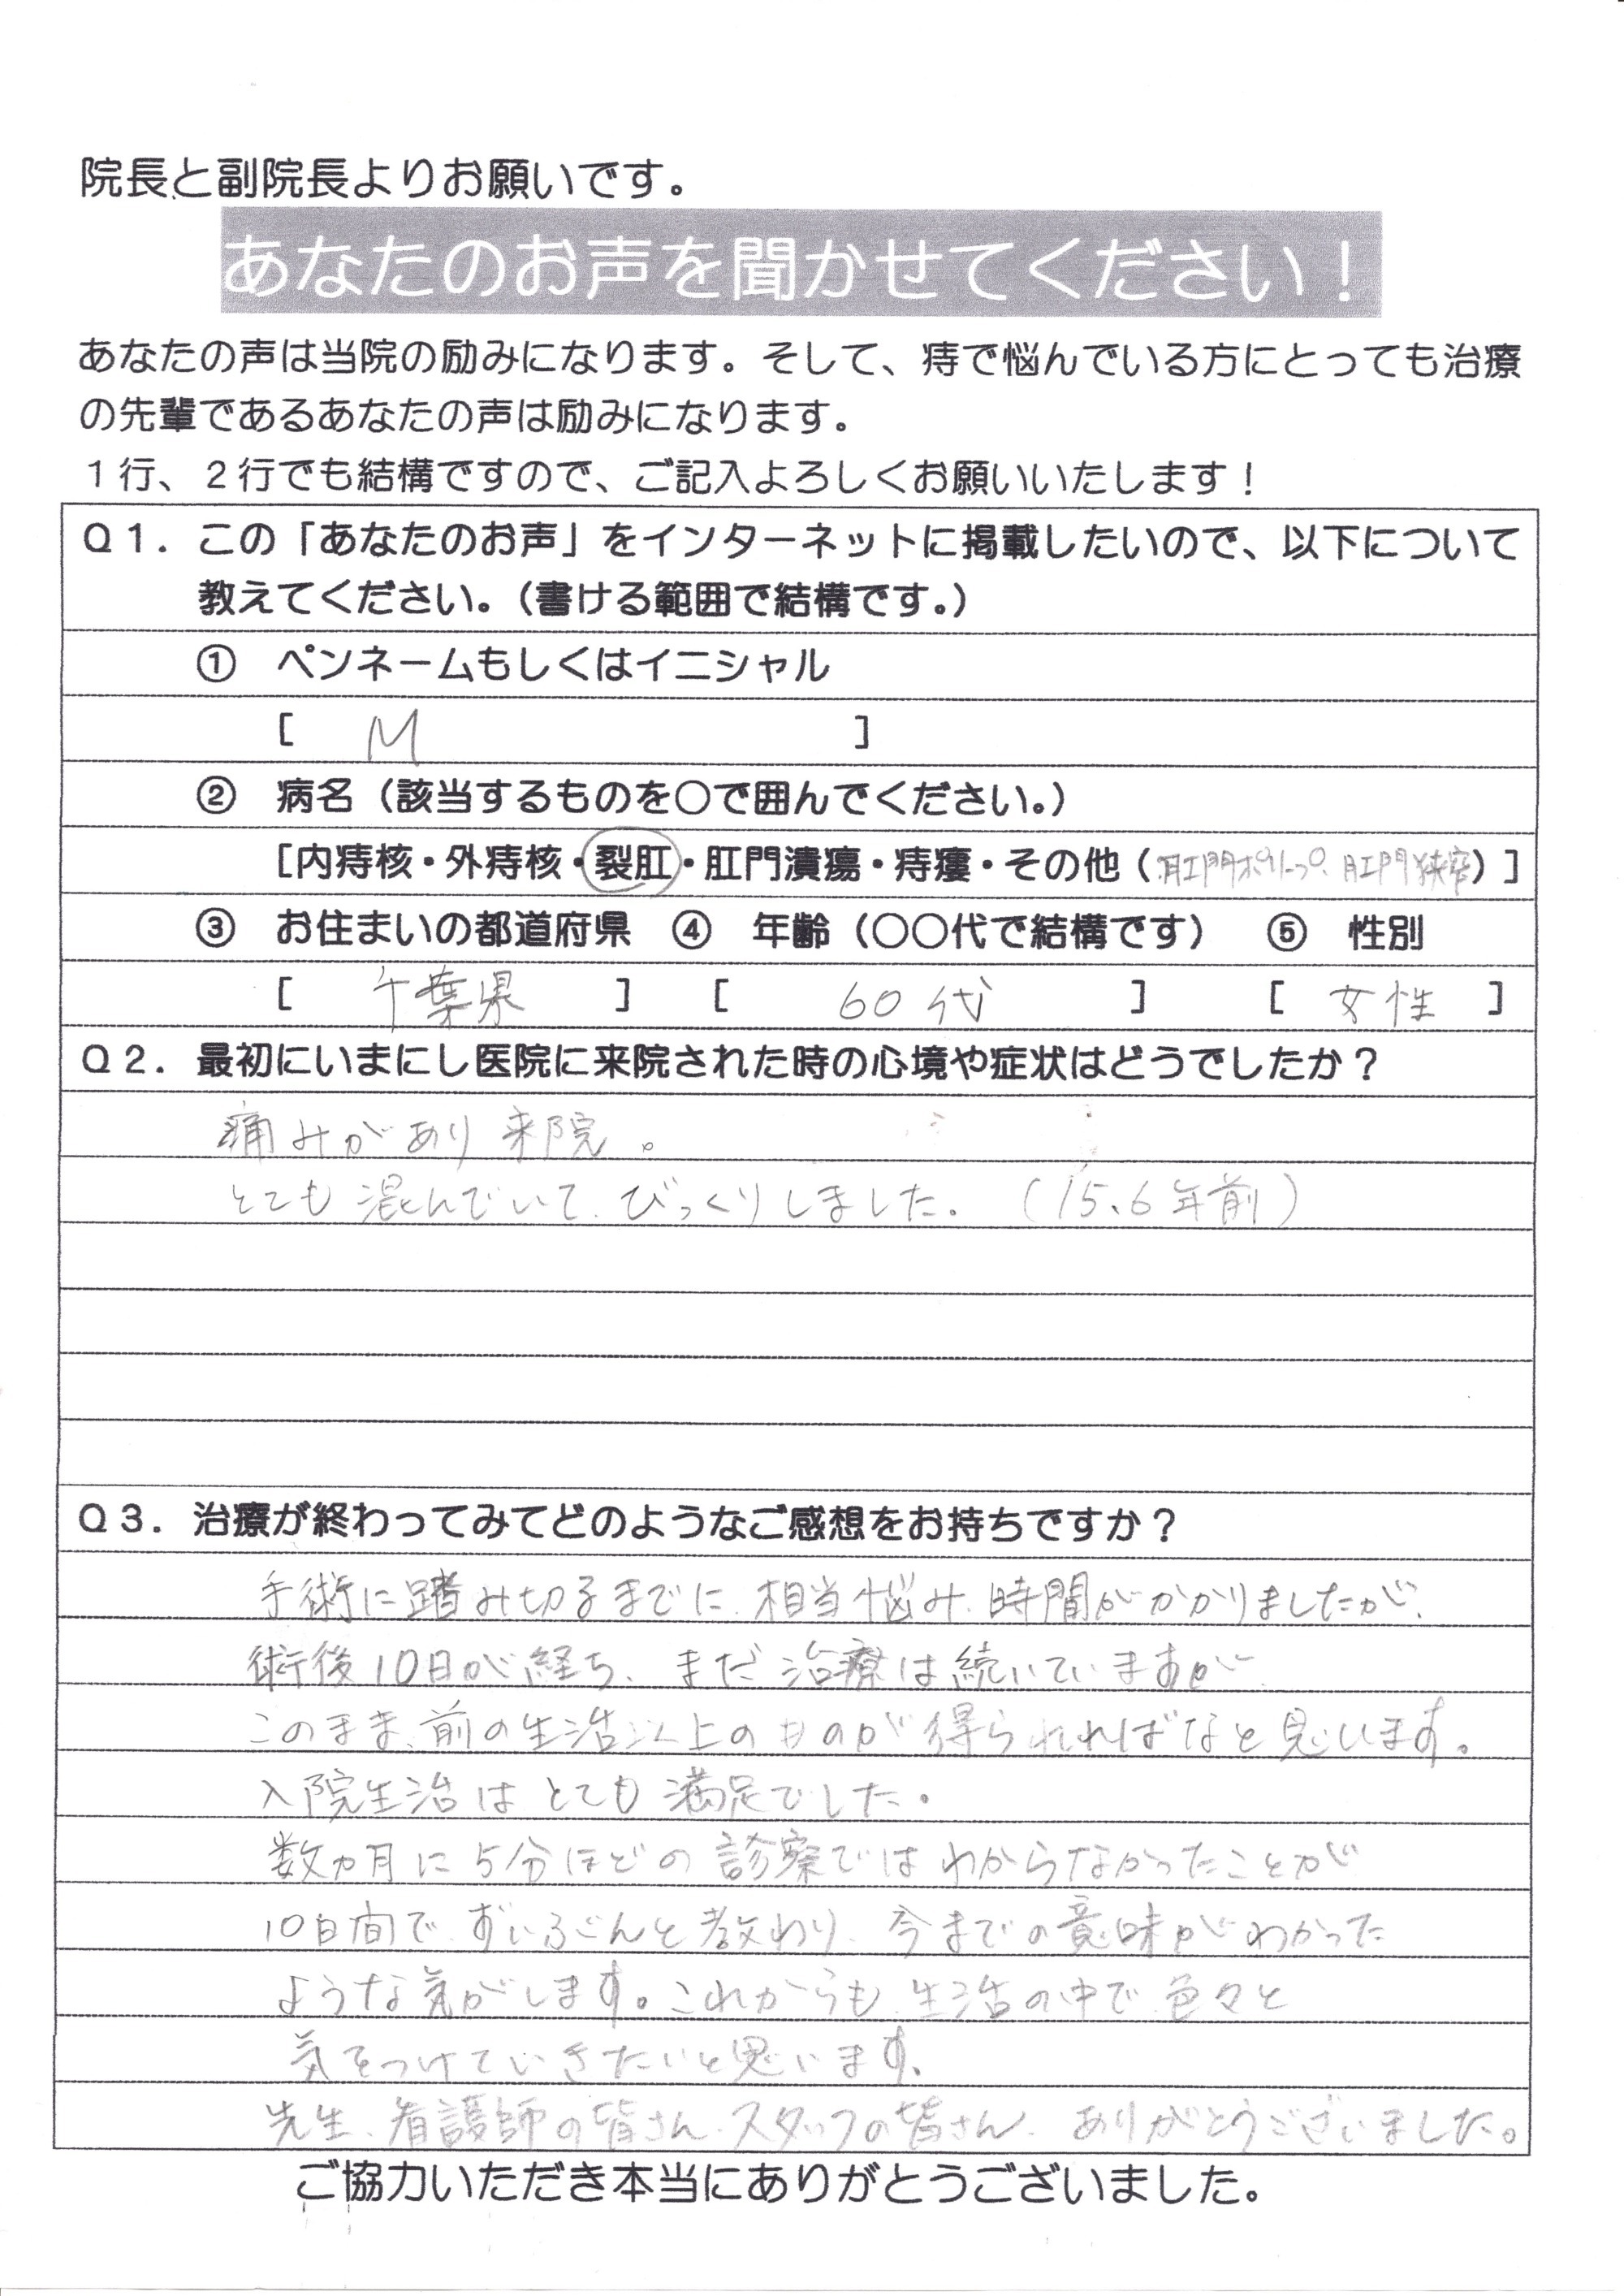 院長と副院長よりお願いです。
あなたのお声を聞かせてください！
あなたの声は当院の励みになります。そして、痔で悩んでいる方にとっても治療
の先輩であるあなたの声は励みになります。
１行、２行でも結構ですので、ご記入よろしくお願いいたします！
Ｑ１．この「あなたのお声」をインターネットに掲載したいので、以下について
教えてください。（書ける範囲で結構です。）
① ペンネームもしくはイニシャル
[ M ]
② 病名（該当するものを○で囲んでください。）
[内痔核・外痔核・裂肛・肛門潰瘍・痔瘻・その他（肛門ポリープ、肛門狭窄）]
③ お住まいの都道府県 ④ 年齢（○○代で結構です） ⑤ 性別
[ 千葉県 ] [ 60代 ] [ 女性 ]
Ｑ２．最初にいまにし医院に来院された時の心境や症状はどうでしたか？
痛みがあり来院。
とても混んでいて、びっくりしました。（15、6年前）
Ｑ３．治療が終わってみてどのようなご感想をお持ちですか？
手術に踏み切るまでに、相当悩み、時間がかかりましたが、
術後10日が経ち、まだ治療は続いていますが
このまま、前の生活以上のものが得られればなと思います。
入院生活はとても満足でした。
数ヵ月に5分ほどの診察ではわからなかったことが
10日間で、ずいぶんと教わり、今までの意味がわかった
ような気がします。これからも、生活の中で色々と
気をつけていきたいと思います。
先生、看護師の皆さん、スタッフの皆さん、ありがとうございました。
ご協力いただき本当にありがとうございました。